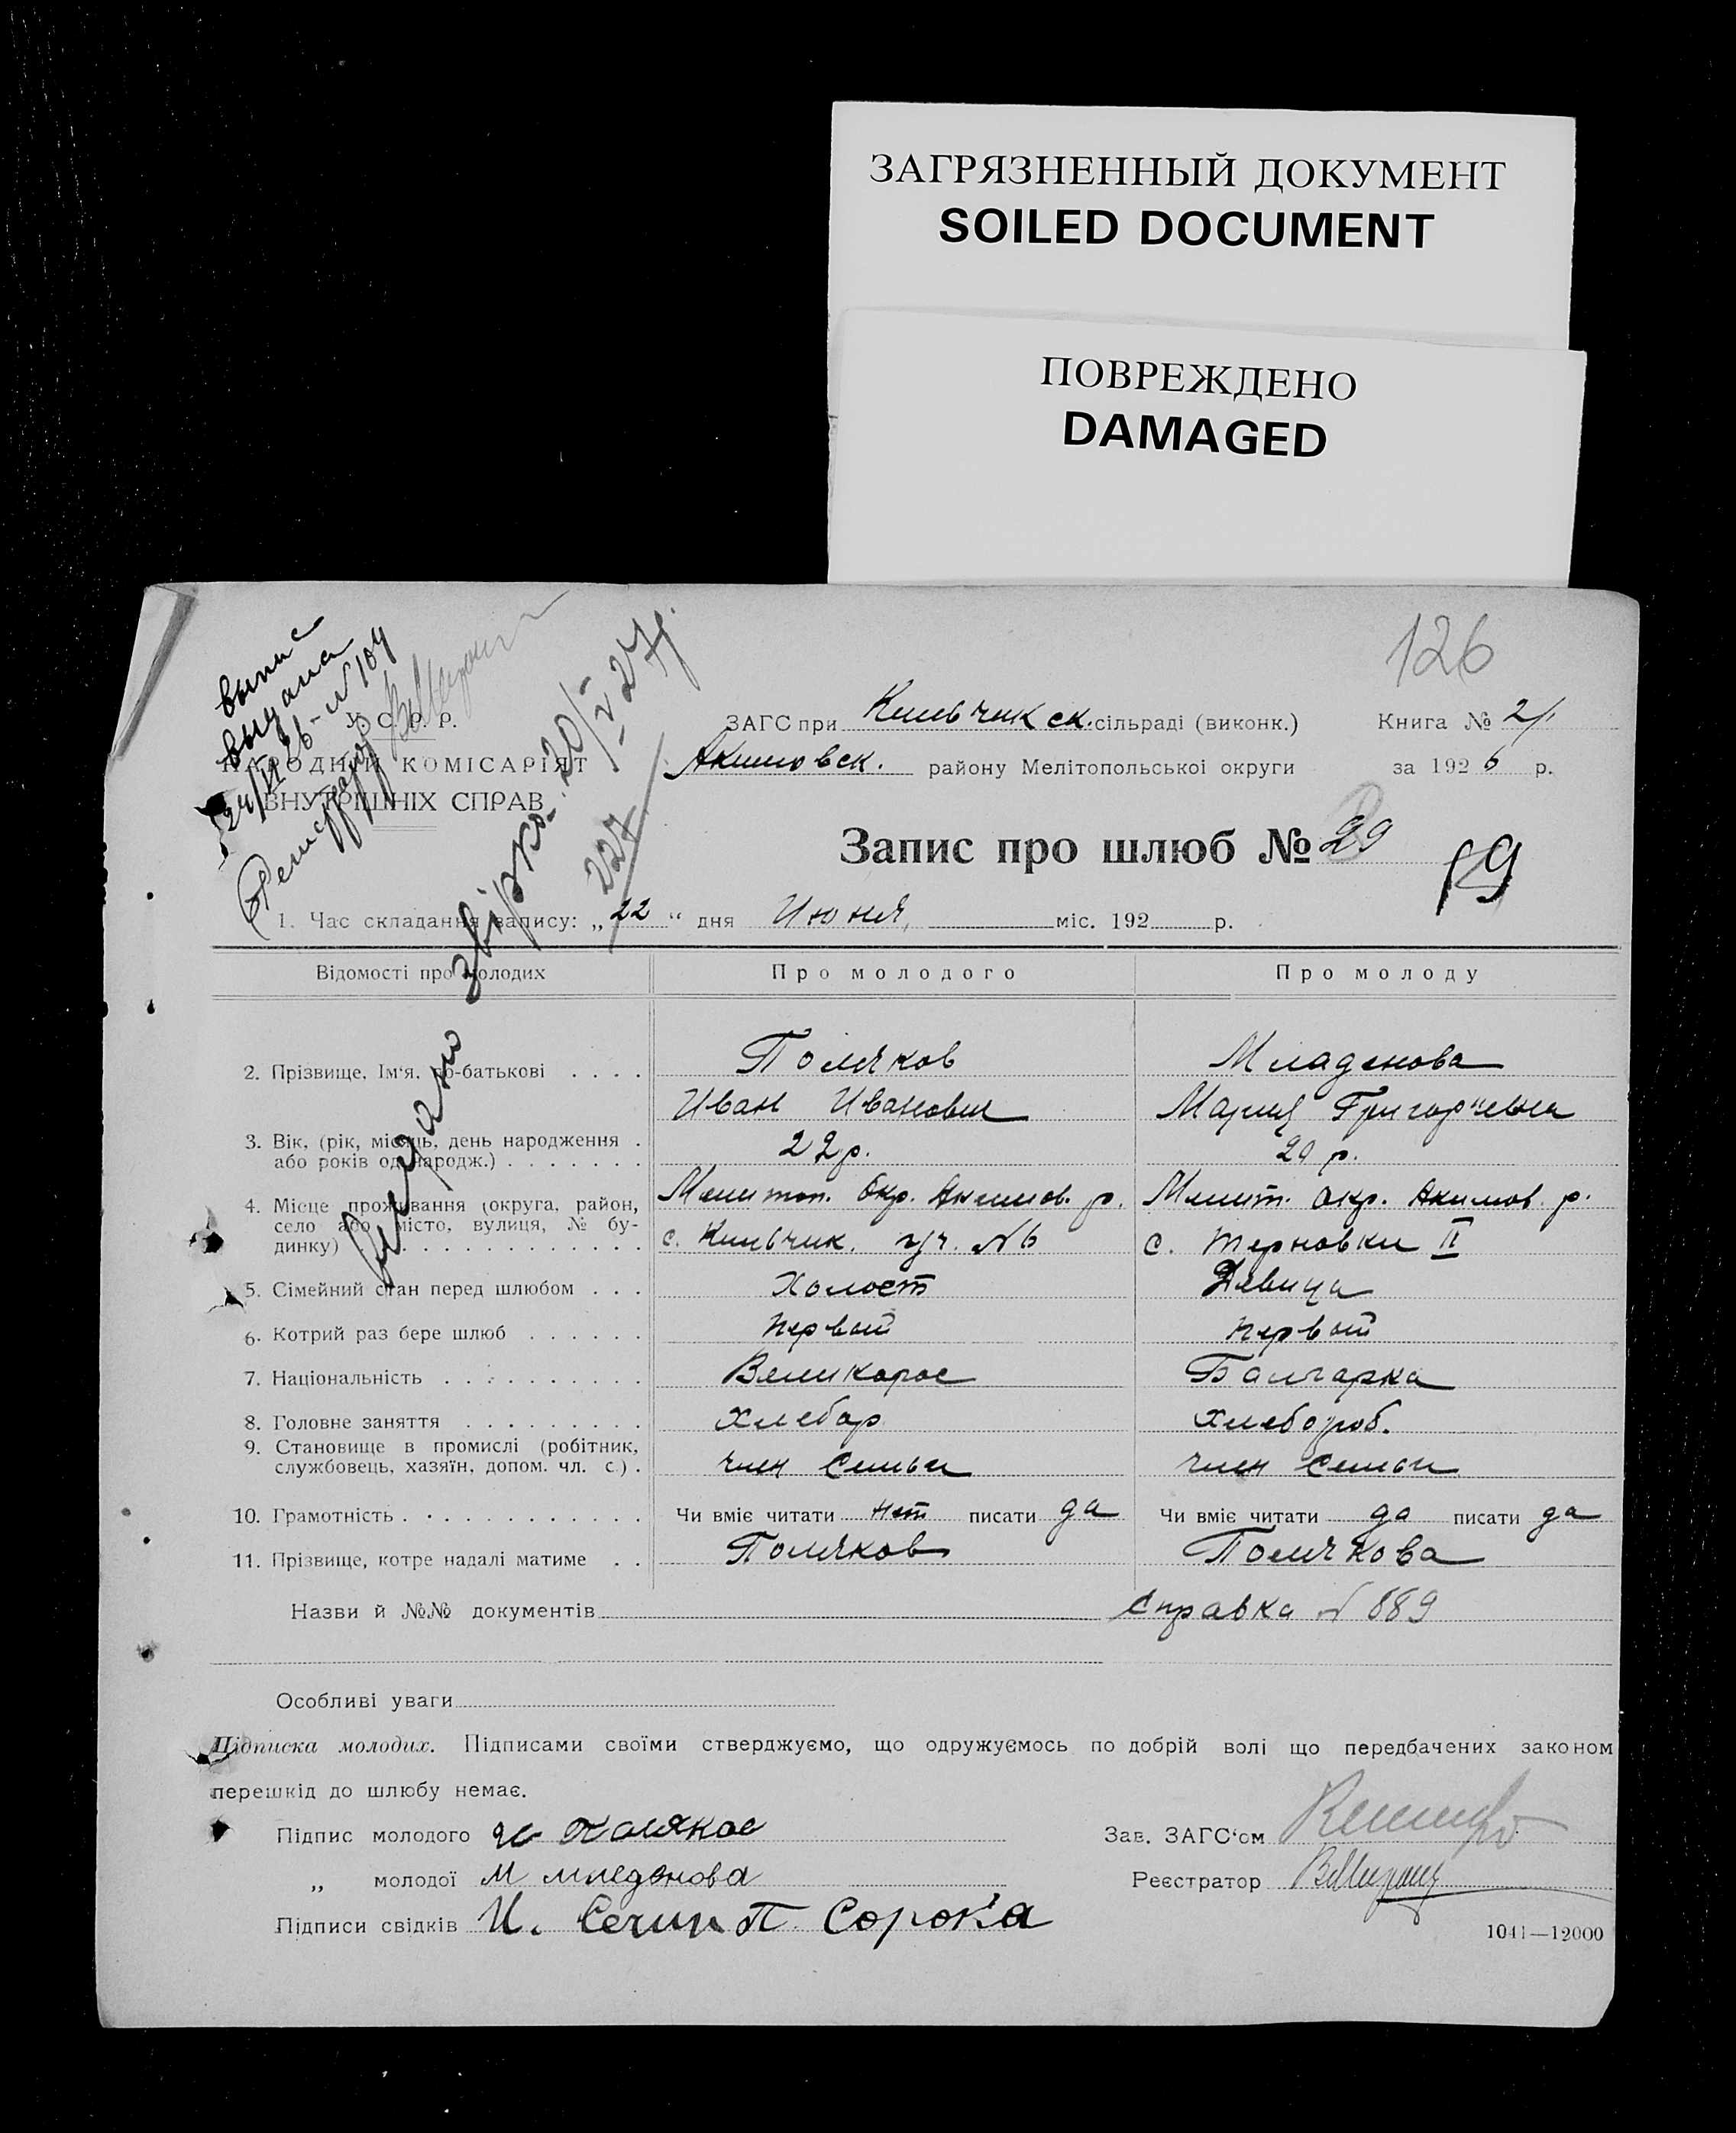 ЗАГРЯЗНЕННЫЙ ДОКУМЕНТ
SOILED DOCUMENT
ПОВРЕЖДЕНО
DAMAGED
126
выпис
выдана
24/VI 26 - №104
Регистратор
Выдано звірко. 20/V 27 р.
227
У. С. Р. Р.
НАРОДНИЙ КОМІСАРІЯТ
ВНУТРІШНІХ СПРАВ
ЗАГС при Кильчикск. сільраді (виконк.) Книга № 2/.
Акимовск. району Мелітопольської округи за 1926 р.
Запис про шлюб № 29
19
1. Час складання запису: „22“ дня Июня, міс. 192 р.
Відомості про молодих Про молодого Про молоду
2. Прізвище, Ім'я, по-батькові . . . . Поляков Младенова
Иван Иванович Мария Григорьевна
3. Вік, (рік, місяць, день народження . 22 р. 20 р.
або років од народж.) . . . . . . .
4. Місце проживання (округа, район, Мелитоп. Окр. Акимов. р. Мелит. окр. Акимов. р.
село або місто, вулиця, № бу-
динку) . . . . . . . . . . . . с. Кильчик. уч. №6 с. Терновки II
5. Сімейний стан перед шлюбом . . . Холост Девица
6. Котрий раз бере шлюб . . . . . . первый первый
7. Національність . . . . . . . . . . Великорос Балгарка
8. Головне заняття . . . . . . . . . Хлебор хлебороб.
9. Становище в промислі (робітник,
службовець, хазяїн, допом. чл. с.) . член семьи член семьи
10. Грамотність . . . . . . . . . . . Чи вміє читати нет писати да Чи вміє читати да писати да
11. Прізвище, котре надалі матиме . . Поляков Полякова
Назви й №№ документів Справка № 889
Особливі уваги
Підписка молодих. Підписами своїми стверджуємо, що одружуємось по добрій волі що передбачених законом
перешкід до шлюбу немає.
Підпис молодого И Поляков Зав. ЗАГС'ом
„ молодої М младенова Реєстратор
Підписи свідків И. Сечин П. Сорока
1041—12000